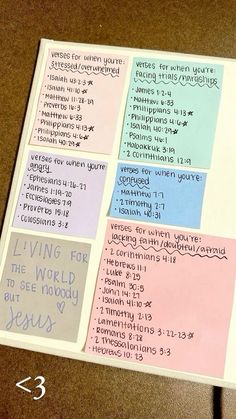 verses for when you're:
stressed/overwhelmed
• Isaiah 43:2-3*
• Isaiah 41:10*
• Matthew 11:28-29
• Proverbs 16:3
• Matthew 6:33
• Philippians 4:13*
• Philippians 4:6*
• Isaiah 40:29*
verses for when you're:
facing trials/hardships
• James 1:2-4
• Matthew 6:33
• Philippians 4:13*
• Philippians 4:6*
• Isaiah 40:29*
• Psalms 46:1
• Habakkuk 3:19
• 2 Corinthians 12:9
verses for when you're
angry
• Ephesians 4:26-27
• James 1:19-20
• Ecclesiastes 7:9
• Proverbs 15:18
• Colossians 3:8
verses for when you're:
confused
• Matthew 7:7
• 2 Timothy 2:7
• Isaiah 40:31
verses for when you're:
lacking faith/doubtful/afraid
• 2 Corinthians 4:18
• Hebrews 11:1
• Luke 8:25
• Psalm 30:5
• John 14:27
• Isaiah 41:10*
• 2 Timothy 2:13
• Lamentations 3:22-23*
• Romans 8:28
• 2 Thessalonians 3:3
• Hebrews 10:23
LIVING FOR
THE WORLD
TO SEE nobody
BUT
Jesus
<3